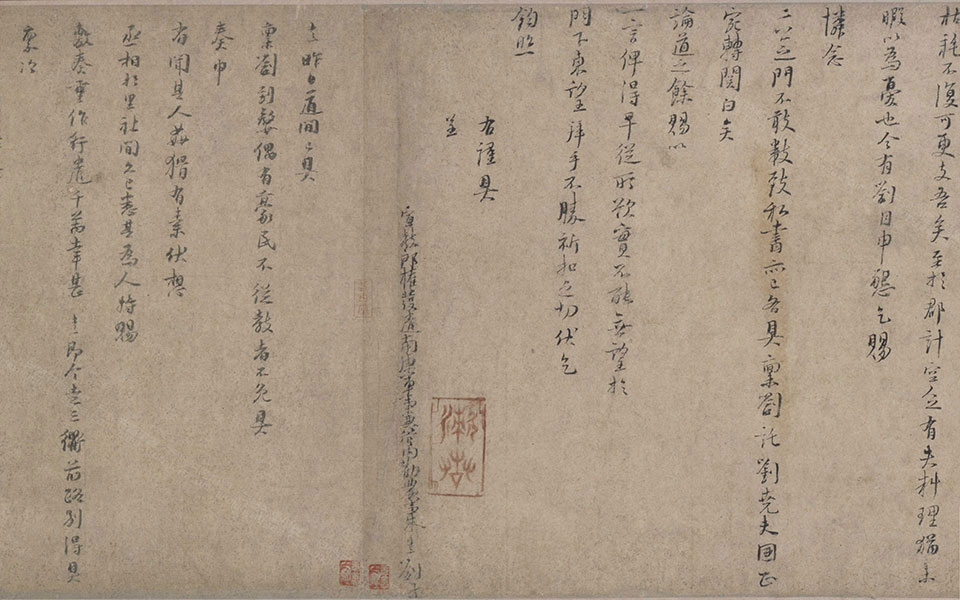 耗不復可更支吾矣至於郡計空乏有失料理猶未
暇以為憂也今有劉目申懇乞賜
憐念
二公之門不敢數致私書亦已各具稟劄託劉堯夫国正
宛轉関白矣
論道之餘賜以
一言俾得早從所欲實不能無望於
門下東望拜手不勝祈扣之切伏乞
鈞照
右謹具
呈
宣教郎權發遣南康軍事兼管內勸農事朱 劄子
昨日道間具
稟劄到
偶有豪民不從教者不免具
奏申
有聞其人姦猾有素伏想
丞相於里社間久已悉其為人特賜
敷奏重作行遣千萬幸甚 即今
前路別得具
稟次